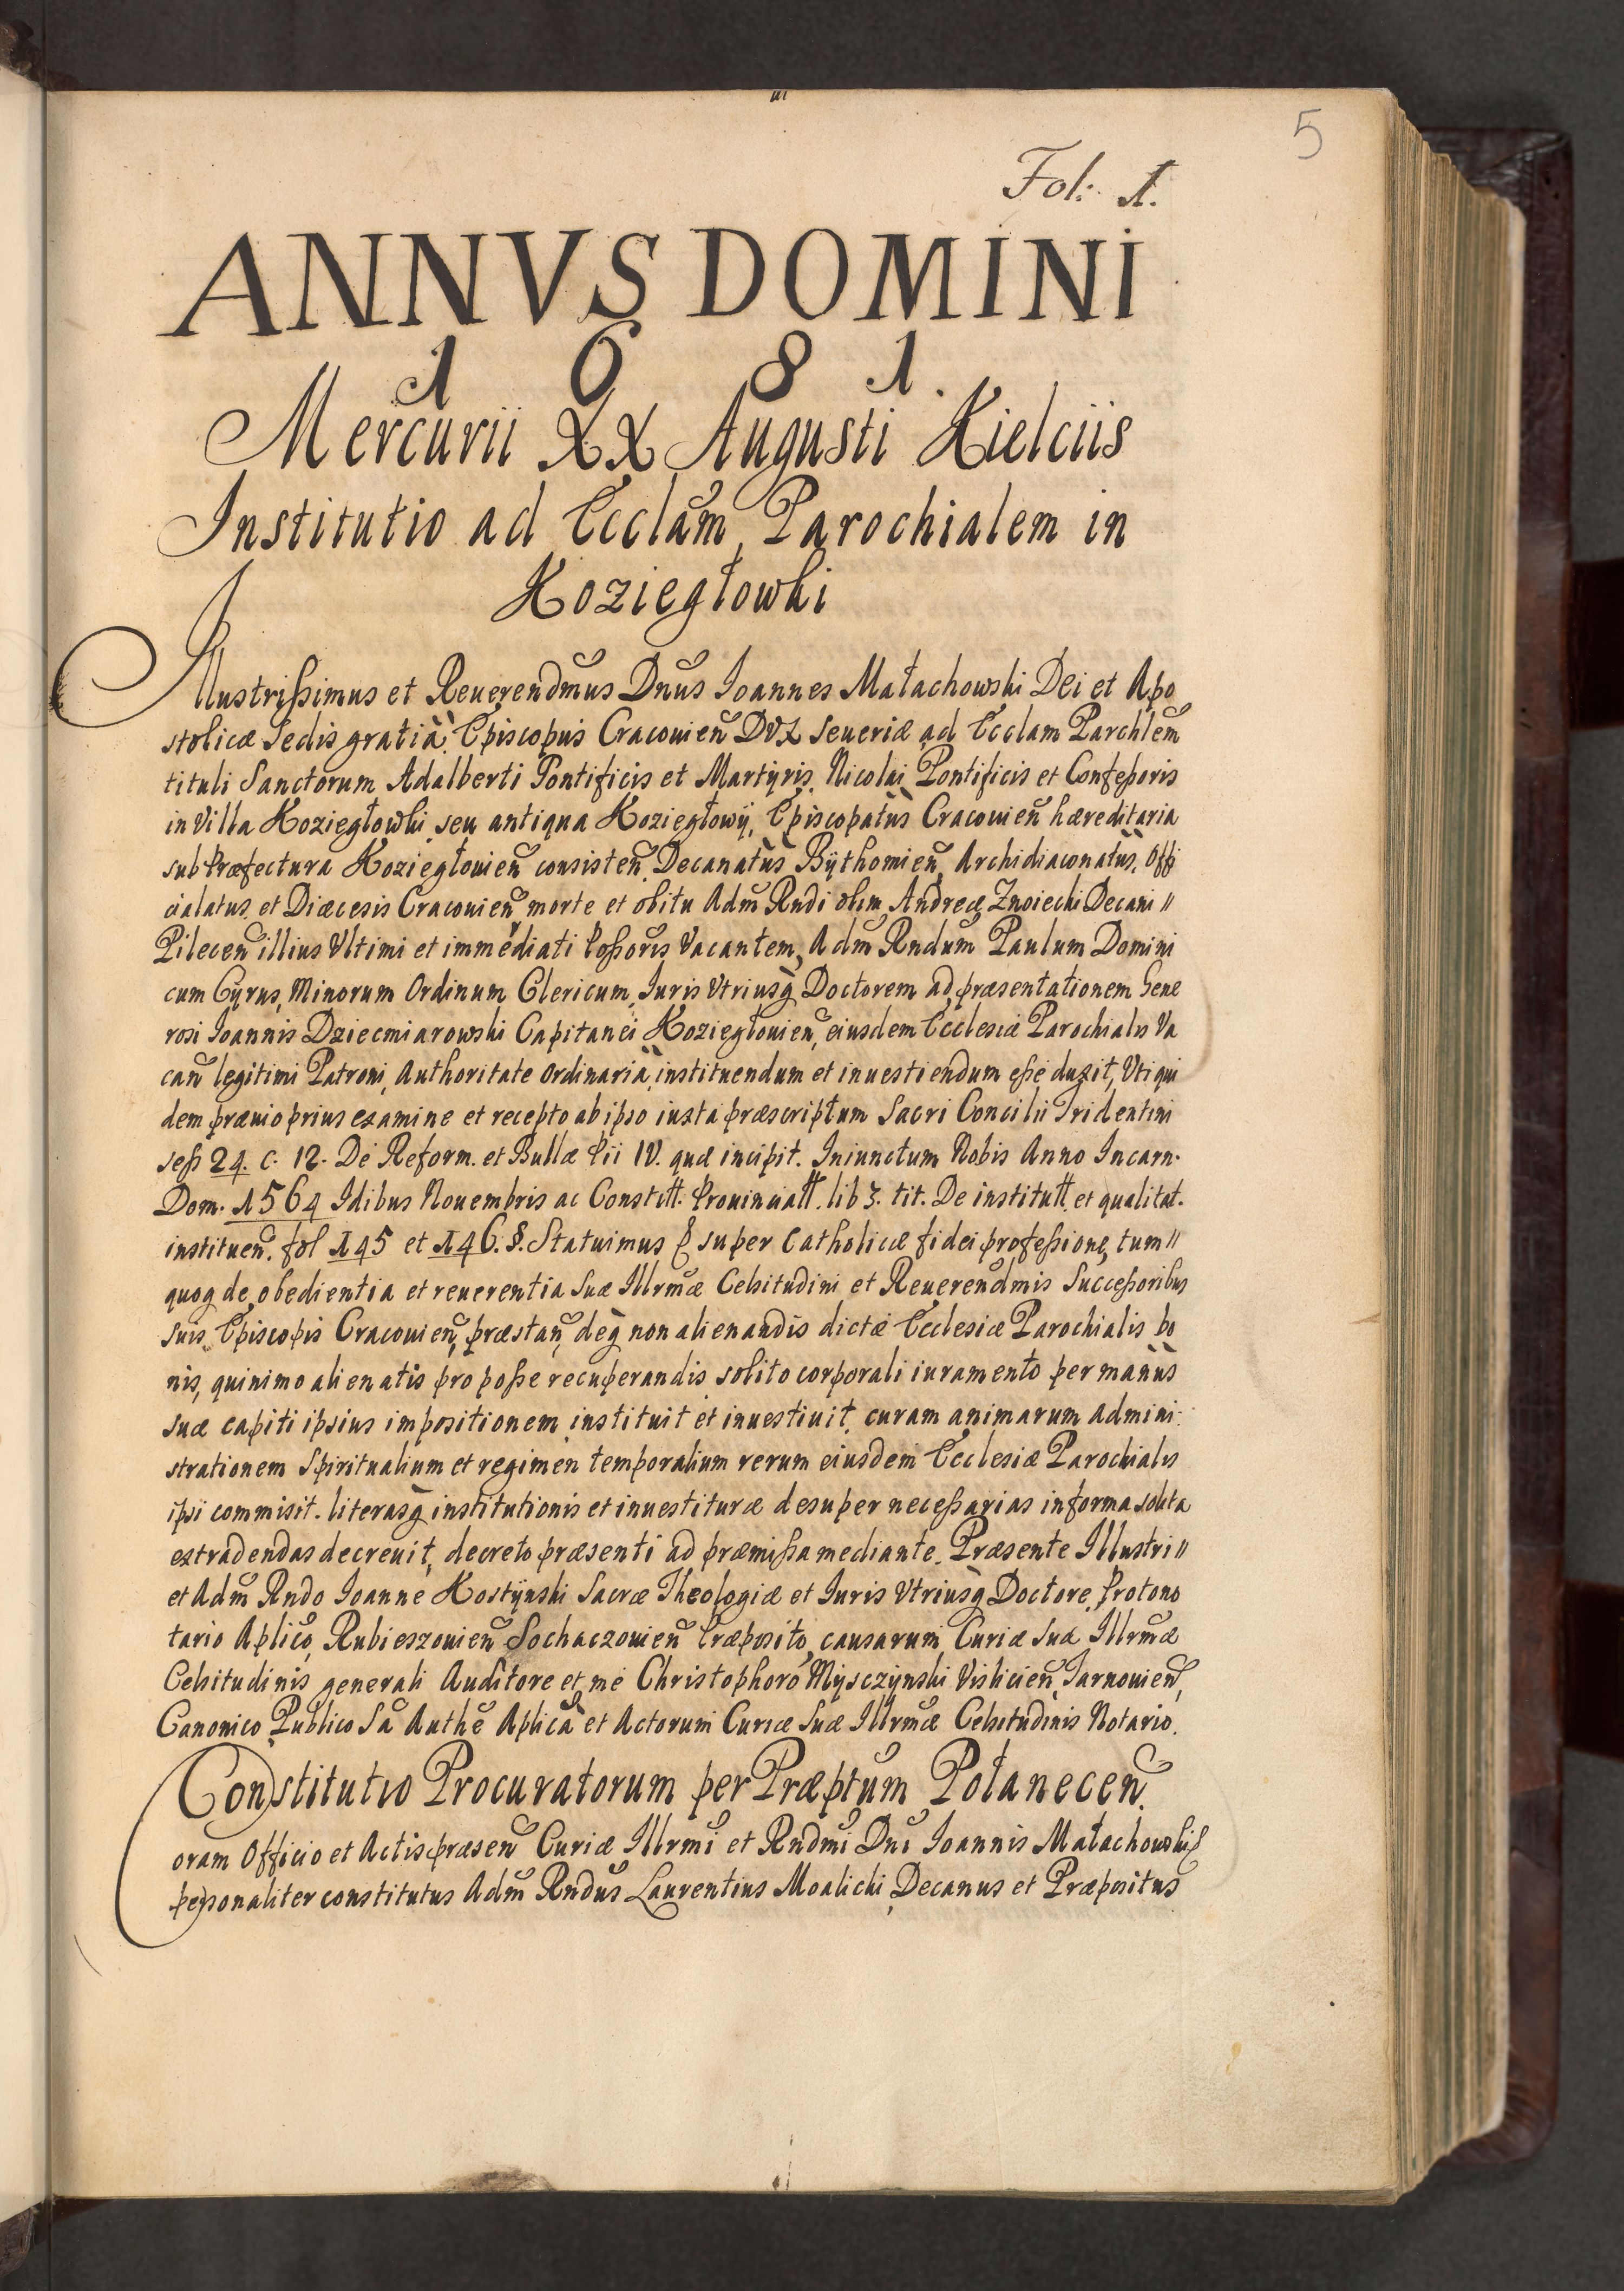 5
Fol: 1.
ANNVS DOMINI
1 6 8 1.
Mercurii XX Augusti Kielciis
Institutio ad Ecclam Parochialem in
Koziegłowki
Illustrißimus et Reuerendmus Dnus Ioannes Małachowski Dei et Apo
stolicæ Sedis gratia Episcopus Cracouien Dux Seueriæ ad Ecclam Parchlem
tituli Sanctorum Adalberti Pontificis et Martyris, Nicolai Pontificis et Confeßoris
in Villa Koziegłowki seu antiqua Koziegłowÿ, Episcopatus Cracouien hæreditaria
sub Præfectura Koziegłouien consisten, Decanatus Bÿthomien, Archidiaconatus, Offi
cialatus et Diæcesis Cracouien morte et obitu Adm Rndi olim Andreæ Znoiecki Decani //
Pilecen illius Vltimi et immediati Poßoris Vacantem, Adm Rndum Paulum Domini
cum Cyrus, Minorum Ordinum Clericum, Iuris Vtriusq Doctorem ad præsentationem Gene
rosi Ioannis Dziecmiarowski Capitanei Koziegłouien, eiusdem Ecclesiæ Parochialis Va
can legitimi Patroni, Authoritate Ordinaria instituendum et inuestiendum eße duxit, Vti qui
dem præuio prius examine et recepto ab ipso iuxta præscriptum Sacri Concilii Tridentini
seß 24. c. 12. De Reform. et Bullæ Pii IV. quæ incipit. Iniunctum Nobis Anno Incarn.
Dom. 1564 Idibus Nouembris ac Constitt. Prouinciatt. lib 3. tit. De institutt. et qualitat.
instituen. fol 145 et 146. §. Statuimus & super Catholicæ fidei profeßione, tum //
quoq de obedientia et reuerentia Suæ Illrmæ Celsitudini et Reuerendmis Succeßoribus
suis Episcopis Cracouien, præstan, deq non alienandis dictæ Ecclesiæ Parochialis bo
nis, quinimo alienatis pro poße recuperandis solito corporali iuramento per manus
suæ capiti ipsius impositionem instituit et inuestiuit, curam animarum admini:
strationem Spiritualium et regimen temporalium rerum eiusdem Ecclesiæ Parochialis
ipsi commisit. literasq institutionis et inuestituræ desuper neceßarias in forma solita
extradendas decreuit, decreto præsenti ad præmißa mediante. Præsente Illustri //
et Adm Rndo Ioanne Kostÿnski Sacræ Theologiæ et Iuris Vtriusq Doctore, Protono
tario Aplico, Rubieszouien Sochaczouien Præposito, causarum Curiæ Suæ Illrmæ
Celsitudinis generali Auditore et me Christophoro Mÿsczÿnski Visliciен, Tarnouien,
Canonico Publico Sa Authe Aplica et Actorum Curiæ Suæ Illrmæ Celsitudinis Notario.
Constitutio Procuratorum per Præptum Połanecen
Coram Officio et Actis præsen Curiæ Illrmi et Rndmi Dni Ioannis Małachowski &
personaliter constitutus Adm Rndus Laurentius Moalicki, Decanus et Præpositus